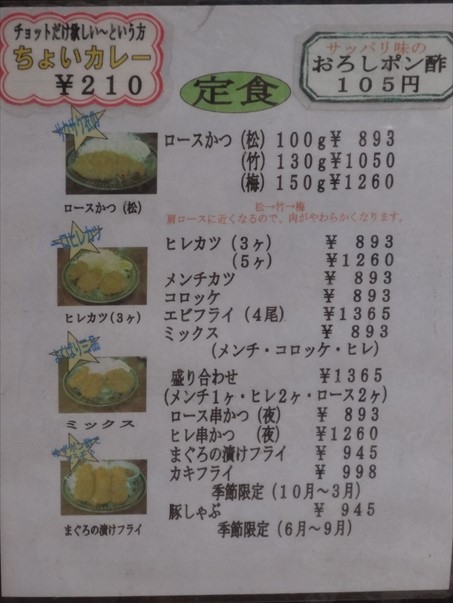 チョットだけ欲しい～という方
ちょいカレー
￥210
サッパリ味の
おろしポン酢
105円
定食
ロースかつ（松）100g￥ 893
（竹）130g￥1050
（梅）150g￥1260
松→竹→梅
肩ロースに近くなるので、肉がやわらかくなります。
ロースかつ（松）
ヒレカツ（3ヶ） ￥ 893
（5ヶ） ￥1260
メンチカツ ￥ 893
コロッケ ￥ 893
エビフライ（4尾） ￥1365
ミックス ￥ 893
（メンチ・コロッケ・ヒレ）
ヒレカツ（3ヶ）
盛り合わせ ￥1365
（メンチ1ヶ・ヒレ2ヶ・ロース2ヶ）
ロース串かつ （夜） ￥ 893
ヒレ串かつ （夜） ￥1260
ミックス
まぐろの漬けフライ ￥ 945
カキフライ ￥ 998
季節限定（10月～3月）
豚しゃぶ ￥ 945
季節限定（6月～9月）
まぐろの漬けフライ